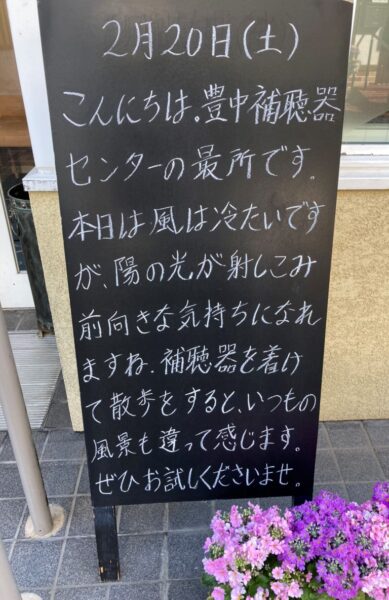 2月20日(土)
こんにちは。豊中補聴器
センターの最所です。
本日は風は冷たいです
が、陽の光が射しこみ
前向きな気持ちになれ
ますね。補聴器を着け
て散歩をすると、いつもの
風景も違って感じます。
ぜひお試しくださいませ。